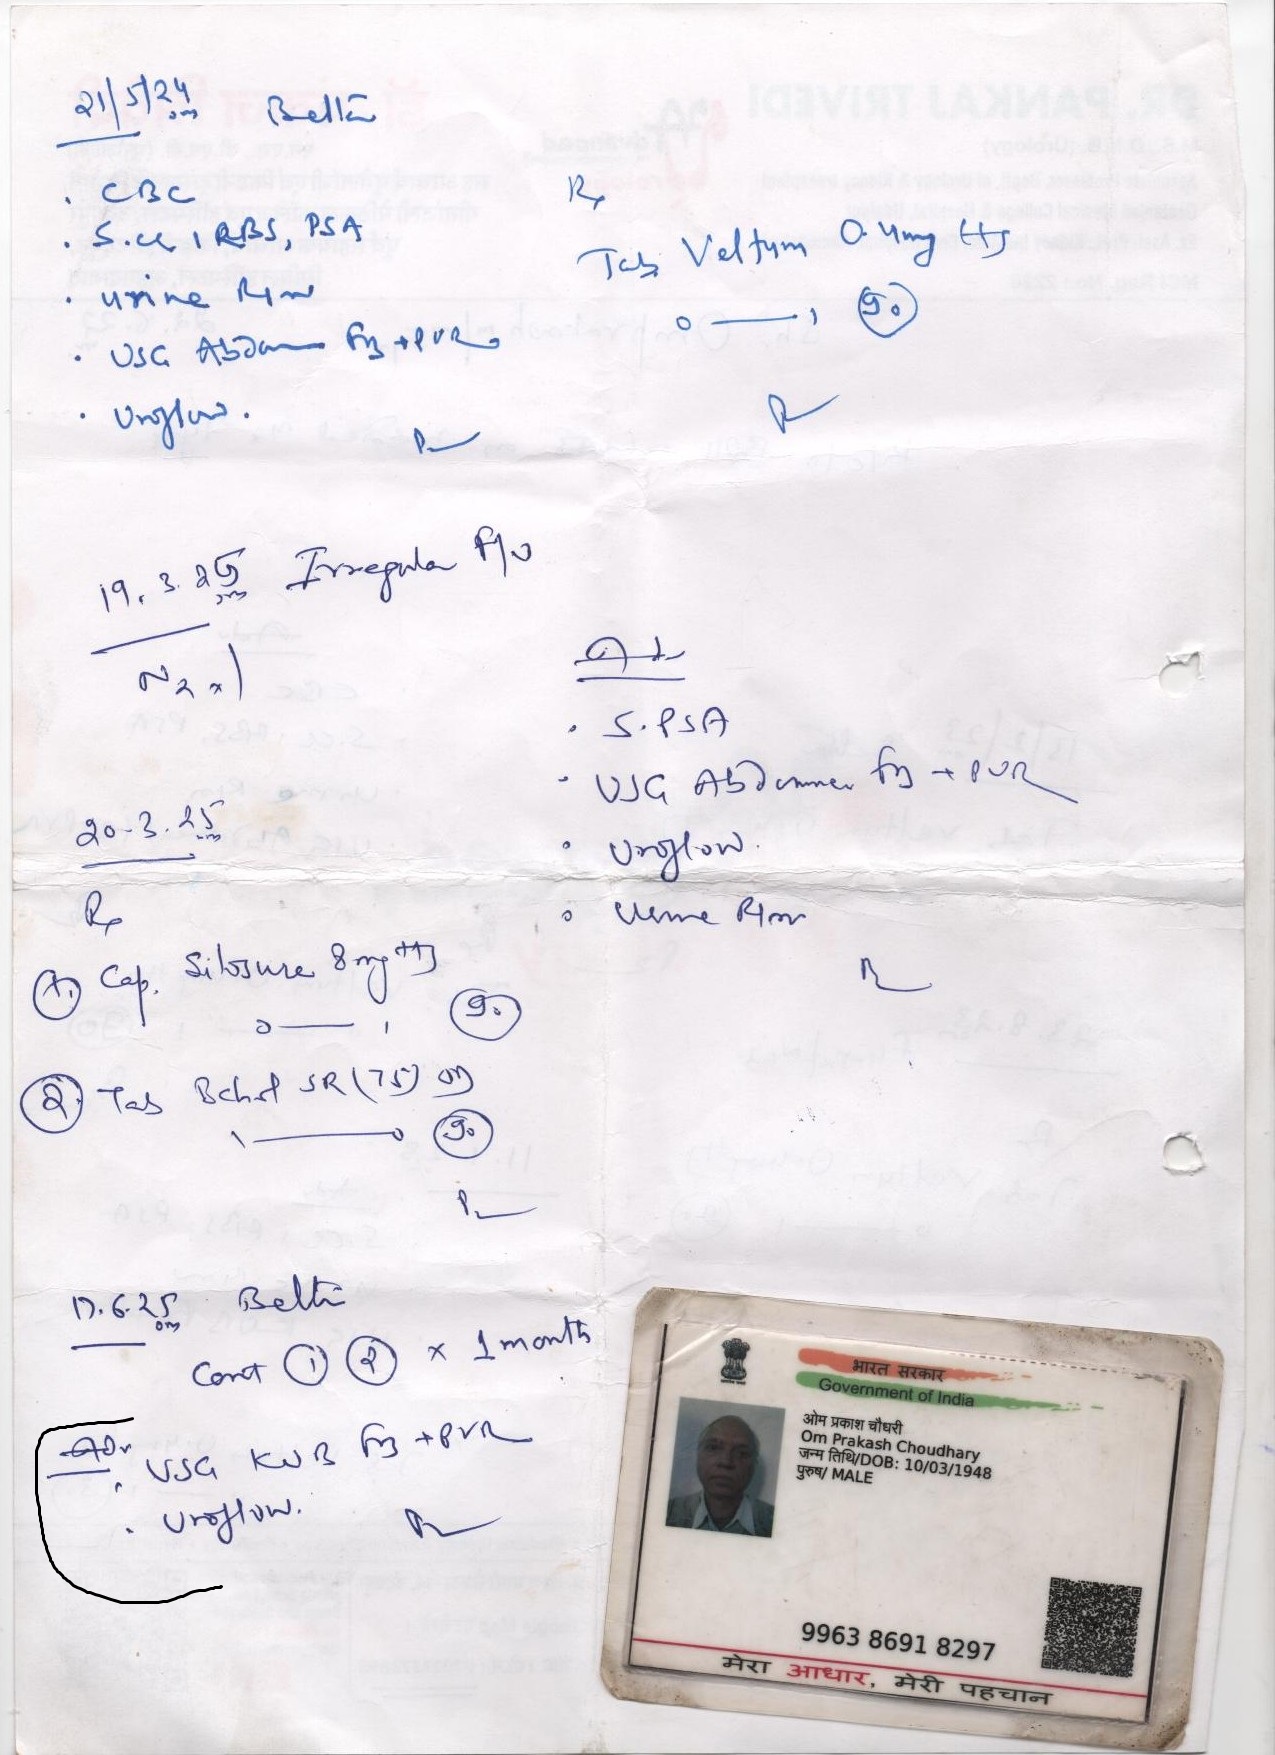 21/5/24 Better
. CBC
. S.cr, RBS, PSA
. urine R/m
. USG Abdomen FB + PVR
. Uroflow.
Rx
Tab Veltam 0.4mg HS
0 — 1 (90)
19.3.25 Irregular F/U
N2x1
Adv
. S.PSA
. USG Abdomen FB + PVR
. Uroflow.
. Urine R/m
20.3.25
Rx
1. Cap. Silosure 8mg HS
0 — 1 (90)
2. Tab SR (75) OD
1 — 0 (90)
17.6.25 Better
Cont 1 2 x 1 month
Adv
. USG KUB FB + PVR
. Uroflow.
भारत सरकार
Government of India
ओम प्रकाश चौधरी
Om Prakash Choudhary
जन्म तिथि/DOB: 10/03/1948
पुरुष/ MALE
9963 8691 8297
मेरा आधार, मेरी पहचान